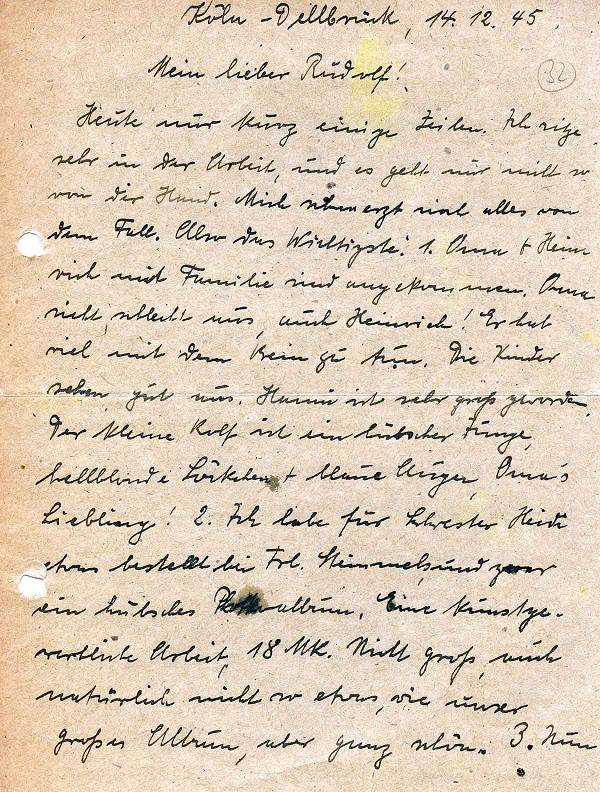 Köln-Dellbrück, 14.12.45.
32
Mein lieber Rudolf!
Heute nur kurz einige Zeilen. Ich sitze
sehr in der Arbeit, und es geht mir nicht so
von der Hand. Mich schmerzt noch alles von
dem Fall. Also das Wichtigste: 1. Oma + Hein
rich mit Familie sind angekommen. Oma
sieht schlecht aus, auch Heinrich! Er hat
viel mit dem Bein zu tun. Die Kinder
sehen gut aus. Hanni ist sehr groß geworden.
Der kleine Rolf ist ein hübscher Junge,
hellblonde Löckchen + blaue Augen, Oma's
Liebling! 2. Ich habe für Schwester Heidi
etwas bestellt bei Frl. und zwar
ein hübsches Photoalbum. Eine kunstge-
werbliche Arbeit, 18 Mk. Nicht groß, auch
natürlich nicht so etwas, wie unser
großes Album, aber ganz schön. 3. Nun